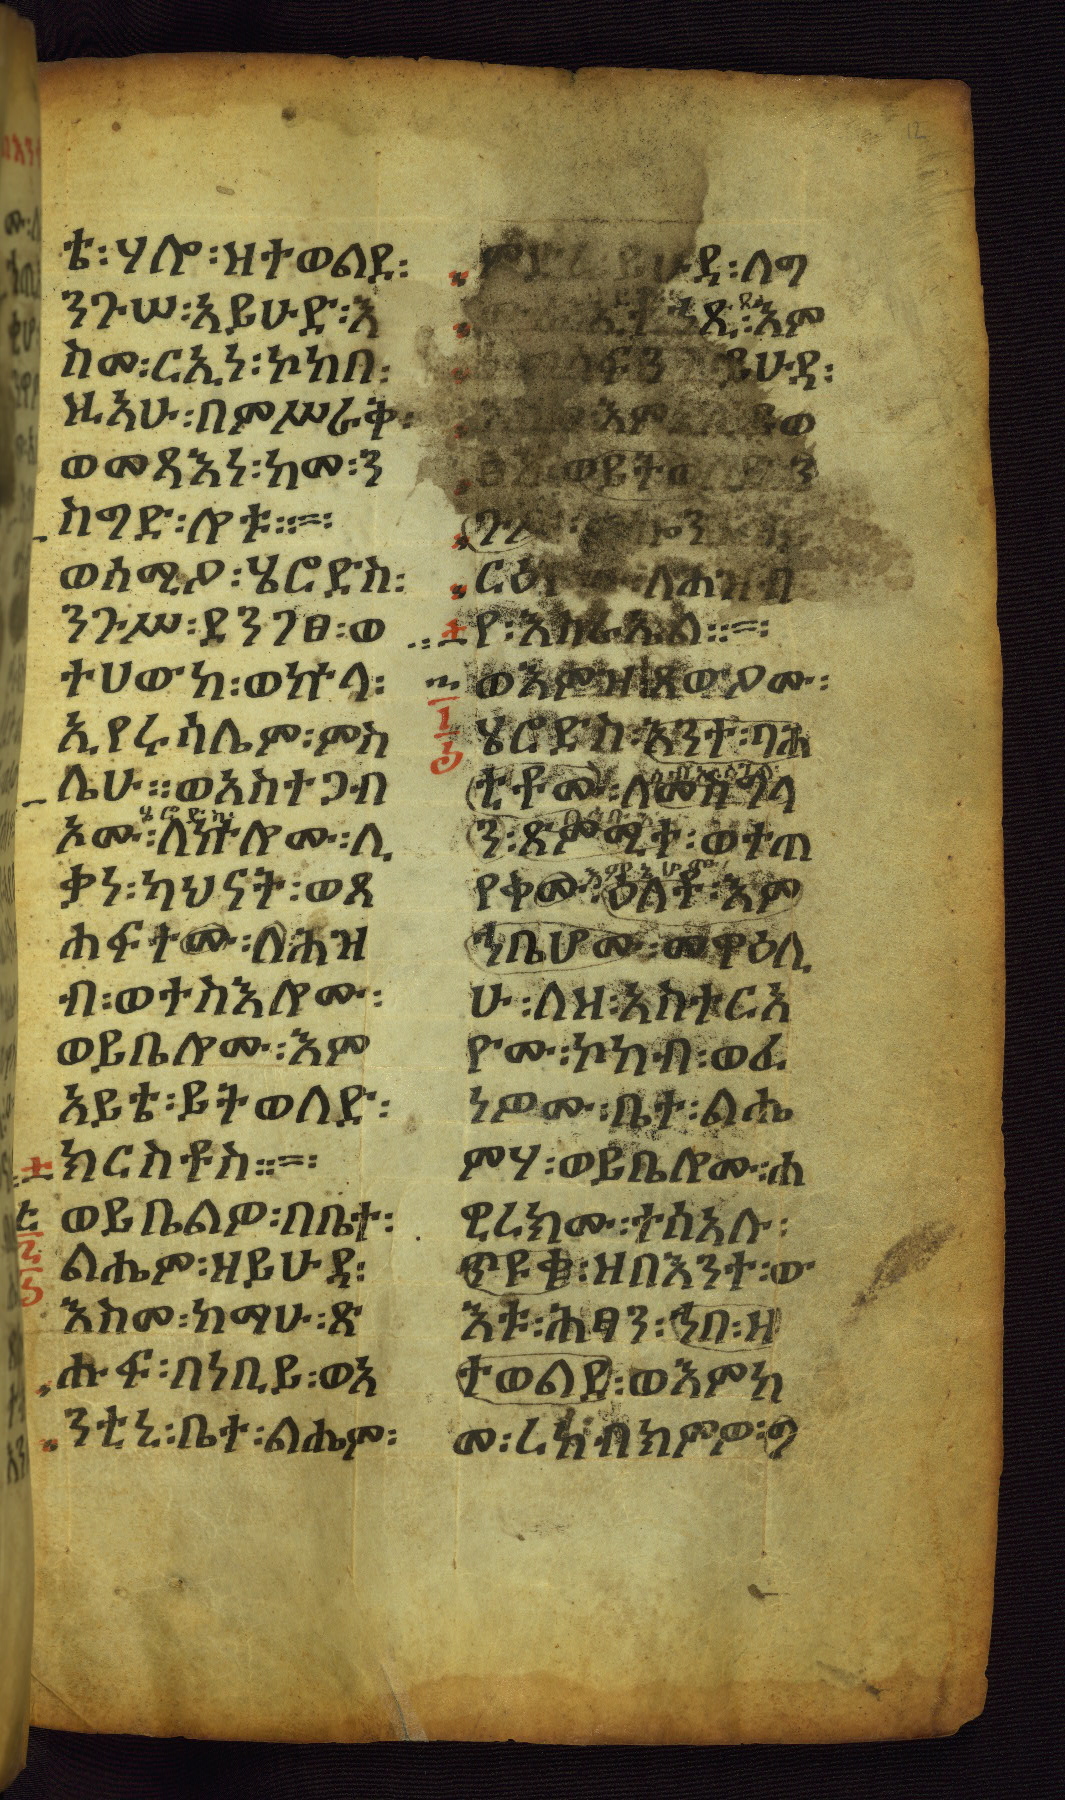 ቴ፡ሃሎ፡ዝተወልደ፡
ንጉሠ፡አይሁድ፡እ
ስመ፡ርኢነ፡ኮከበ፡
ዚአሁ፡በምሥራቅ፡
ወመጻእነ፡ከመ፡ን
ስግድ፡ሎቱ።
ወሰሚዖ፡ሄሮድስ፡
ንጉሥ፡ደንገፀ፡ወ
ተሀውከ፡ወኵላ፡
ኢየሩሳሌም፡ምስ
ሌሁ።ወአስተጋብ
ሄሮድስ
ኦሙ፡ለኵሎሙ፡ሊ
ቃነ፡ካህናት፡ወጸ
ሐፍተሙ፡ለሕዝ
ብ፡ወተስእሎሙ፡
ወይቤሎሙ፡እም
አይቴ፡ይትወለድ፡
ክርስቶስ።
ወይቤልዎ፡በቤተ፡
ልሔም፡ዘይሁዳ፡
እስመ፡ከማሁ፡ጽ
ሑፍ፡በነቢይ፡ወአ
ንቲኒ፡ቤተ፡ልሔም፡
ምድረ፡ይሁዳ፡ለግ
ንጺ፡እም
ይሁዳ፡
ርዕ ለሕዝብ
የ፡እስራኤል።
ወእምዝ፡ጸውዖሙ፡
ሄሮድስ፡እንተ፡ባሕ
ቲቶሙ፡ለመሰግላ
ን፡ጽምሚተ፡ወተጠ
የቀሙ፡ዕለተ፡እም
ኀቤሆሙ፡መዋዕሊ
ሁ፡ለዝ፡አስተርአ
ዮሙ፡ኮከብ፡ወፈ
ነዎሙ፡ቤተ፡ልሔ
ምሃ፡ወይቤሎሙ፡ሐ
ዊረክሙ፡ተስአሉ፡
ጥዩቀ፡ዝበእንተ፡ው
እቱ፡ሕፃን፡ኀበ፡ዘ
ተወልደ፡ወእምከ
መ፡ረከብክምዎ፡ግ